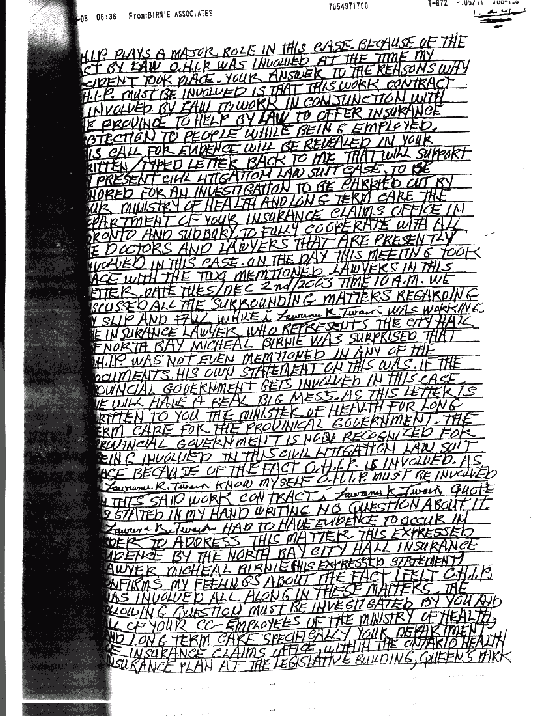 -08 08:36 From:BIRNIE ASSOCIATES 7054971760 T-872
H.I.P PLAYS A MAJOR ROLE IN THIS CASE BECAUSE OF THE
CT BY LAW O.H.I.P WAS INVOLVED AT THE TIME MY
CIDENT TOOK PLACE. YOUR ANSWER TO THE REASONS WHY
H.I.P. MUST BE INVOLVED IS THAT THIS WORK CONTRACT
INVOLVED BY LAW TO WORK IN CONJUNCTION WITH
E PROVINCE TO HELP BY LAW TO OFFER INSURANCE
OTECTION TO PEOPLE WHILE BEING EMPLOYED.
IS CALL FOR EVIDENCE WILL BE REVEALED IN YOUR
RITTEN/TYPED LETTER BACK TO ME THAT WILL SUPPORT
Y PRESENT CIVIL LITIGATION LAW SUIT CASE, TO BE
NORED FOR AN INVESTIGATION TO BE CARRIED OUT BY
UR MINISTRY OF HEALTH AND LONG TERM CARE THE
EPARTMENT OF YOUR INSURANCE CLAIMS OFFICE IN
ORONTO AND SUDBURY TO FULLY COOPERATE WITH ALL
E DOCTORS AND LAWYERS THAT ARE PRESENTLY
NVOLVED IN THIS CASE. ON THE DAY THIS MEETING TOOK
ACE WITH THE TWO MEMTIONED LAWYERS IN THIS
ETTER, DATE TUES/DEC 2nd/2003 TIME 10 A.M. WE
SCUSSED ALL THE SURROUNDING MATTERS REGARDING
Y SLIP AND FALL WHILE I WAS WORKING.
E INSURANCE LAWYER WHO REPRESENTS THE CITY HALL
F NORTH BAY MICHEAL BIRNIE WAS SURPRISED THAT
H.I.P WAS NOT EVEN MEMTIONED IN ANY OF THE
OCUMENTS. HIS OWN STATEMENT ON THIS WAS. IF THE
OVINCIAL GOVERNMENT GETS INVOLVED IN THIS CASE
E WILL HAVE A REAL BIG MESS. AS THIS LETTER IS
RITTEN TO YOU THE MINISTER OF HEALTH FOR LONG
ERM CARE FOR THE PROVINICAL GOVERNMENT. THE
ROVINCIAL GOVERNMENT IS NOW RECOGNIZED FOR
EING INVOLVED IN THIS CIVIL LITIGATION LAW SUIT
ASE BECAUSE OF THE FACT O.H.I.P. IS INVOLVED. AS
KNOW MYSELF O.H.I.P MUST BE INVOLVED
THIS SAID WORK CONTRACT. QUOTE
S STATED IN MY HAND WRITING NO QUESTION ABOUT IT.
HAD TO HAVE EVIDENCE TO OCCUR IN
DER TO ADDRESS THIS MATTER. THIS EXPRESSED
IDENCE BY THE NORTH BAY CITY HALL INSURANCE
AWYER MICHEAL BIRNIE (HIS EXPRESSED STATEMENT)
ONFIRMS MY FEELINGS ABOUT THE FACT I FELT O.H.I.P.
AS INVOLVED ALL ALONG IN THESE MATTERS. THE
LLOWING QUESTION MUST BE INVESTIGATED BY YOU AND
L OF YOUR CO-EMPLOYEES OF THE MINISTRY OF HEALTH,
ND LONG TERM CARE SPECIFICALLY YOUR DEPARTMENT
E INSURANCE CLAIMS OFFICE, WITHIN THE ONTARIO HEALTH
NSURANCE PLAN AT THE LEGISLATIVE BUILDING, QUEEN'S PARK